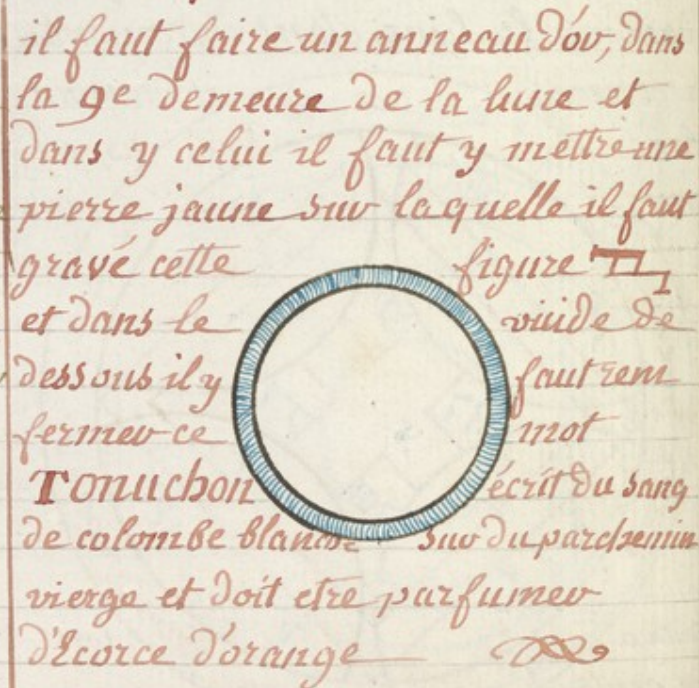 il faut faire un anneau d'ov, dans
la 9e demeure de la lune et
dans y celui il faut y mettre une
pierre jaune suv laquelle il faut
gravé cette figure
et dans le vuide de
dessous il y faut rem
fermev ce mot
Tonuchon écrit du sang
de colombe blanche suv du parchemin
vierge et doit etre parfumev
d'Ecorce d'orange